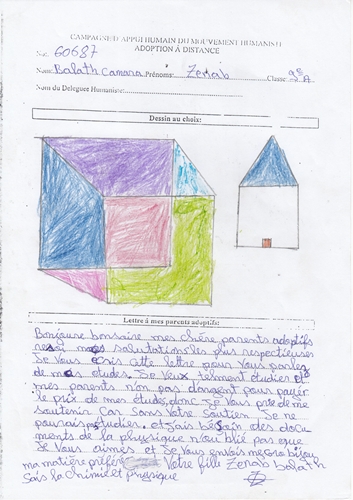 CAMPAGNE D'APPUI HUMAIN DU MOUVEMENT HUMANISTE
ADOPTION À DISTANCE
No: 60687
Nom: Balath Camara Prénoms: Zenab Classe: 9e A
Nom du Délégué Humaniste:
Dessin au choix:
Lettre à mes parents adoptifs:
Bonjoure bonsaire mes chère parents adoptifs
mes salutations les plus respectieuses
Je Vous Cris cette lettre pour Vous parlez
de mes etudes. Je Veux étudier
mes parents n'on pas d'argent pour payer
le prix de mes études, donc Je Vous prie de me
soutenir Car Sans Votre Soutien Je ne
pourais etudier. et Jais besoin des docu
ments de la physique n'oublié pas que
Je Vous aimes et Je Vous envois mes gros bijou
ma matière préféré Votre fille Zenab balath
Sais la Chimie et physique